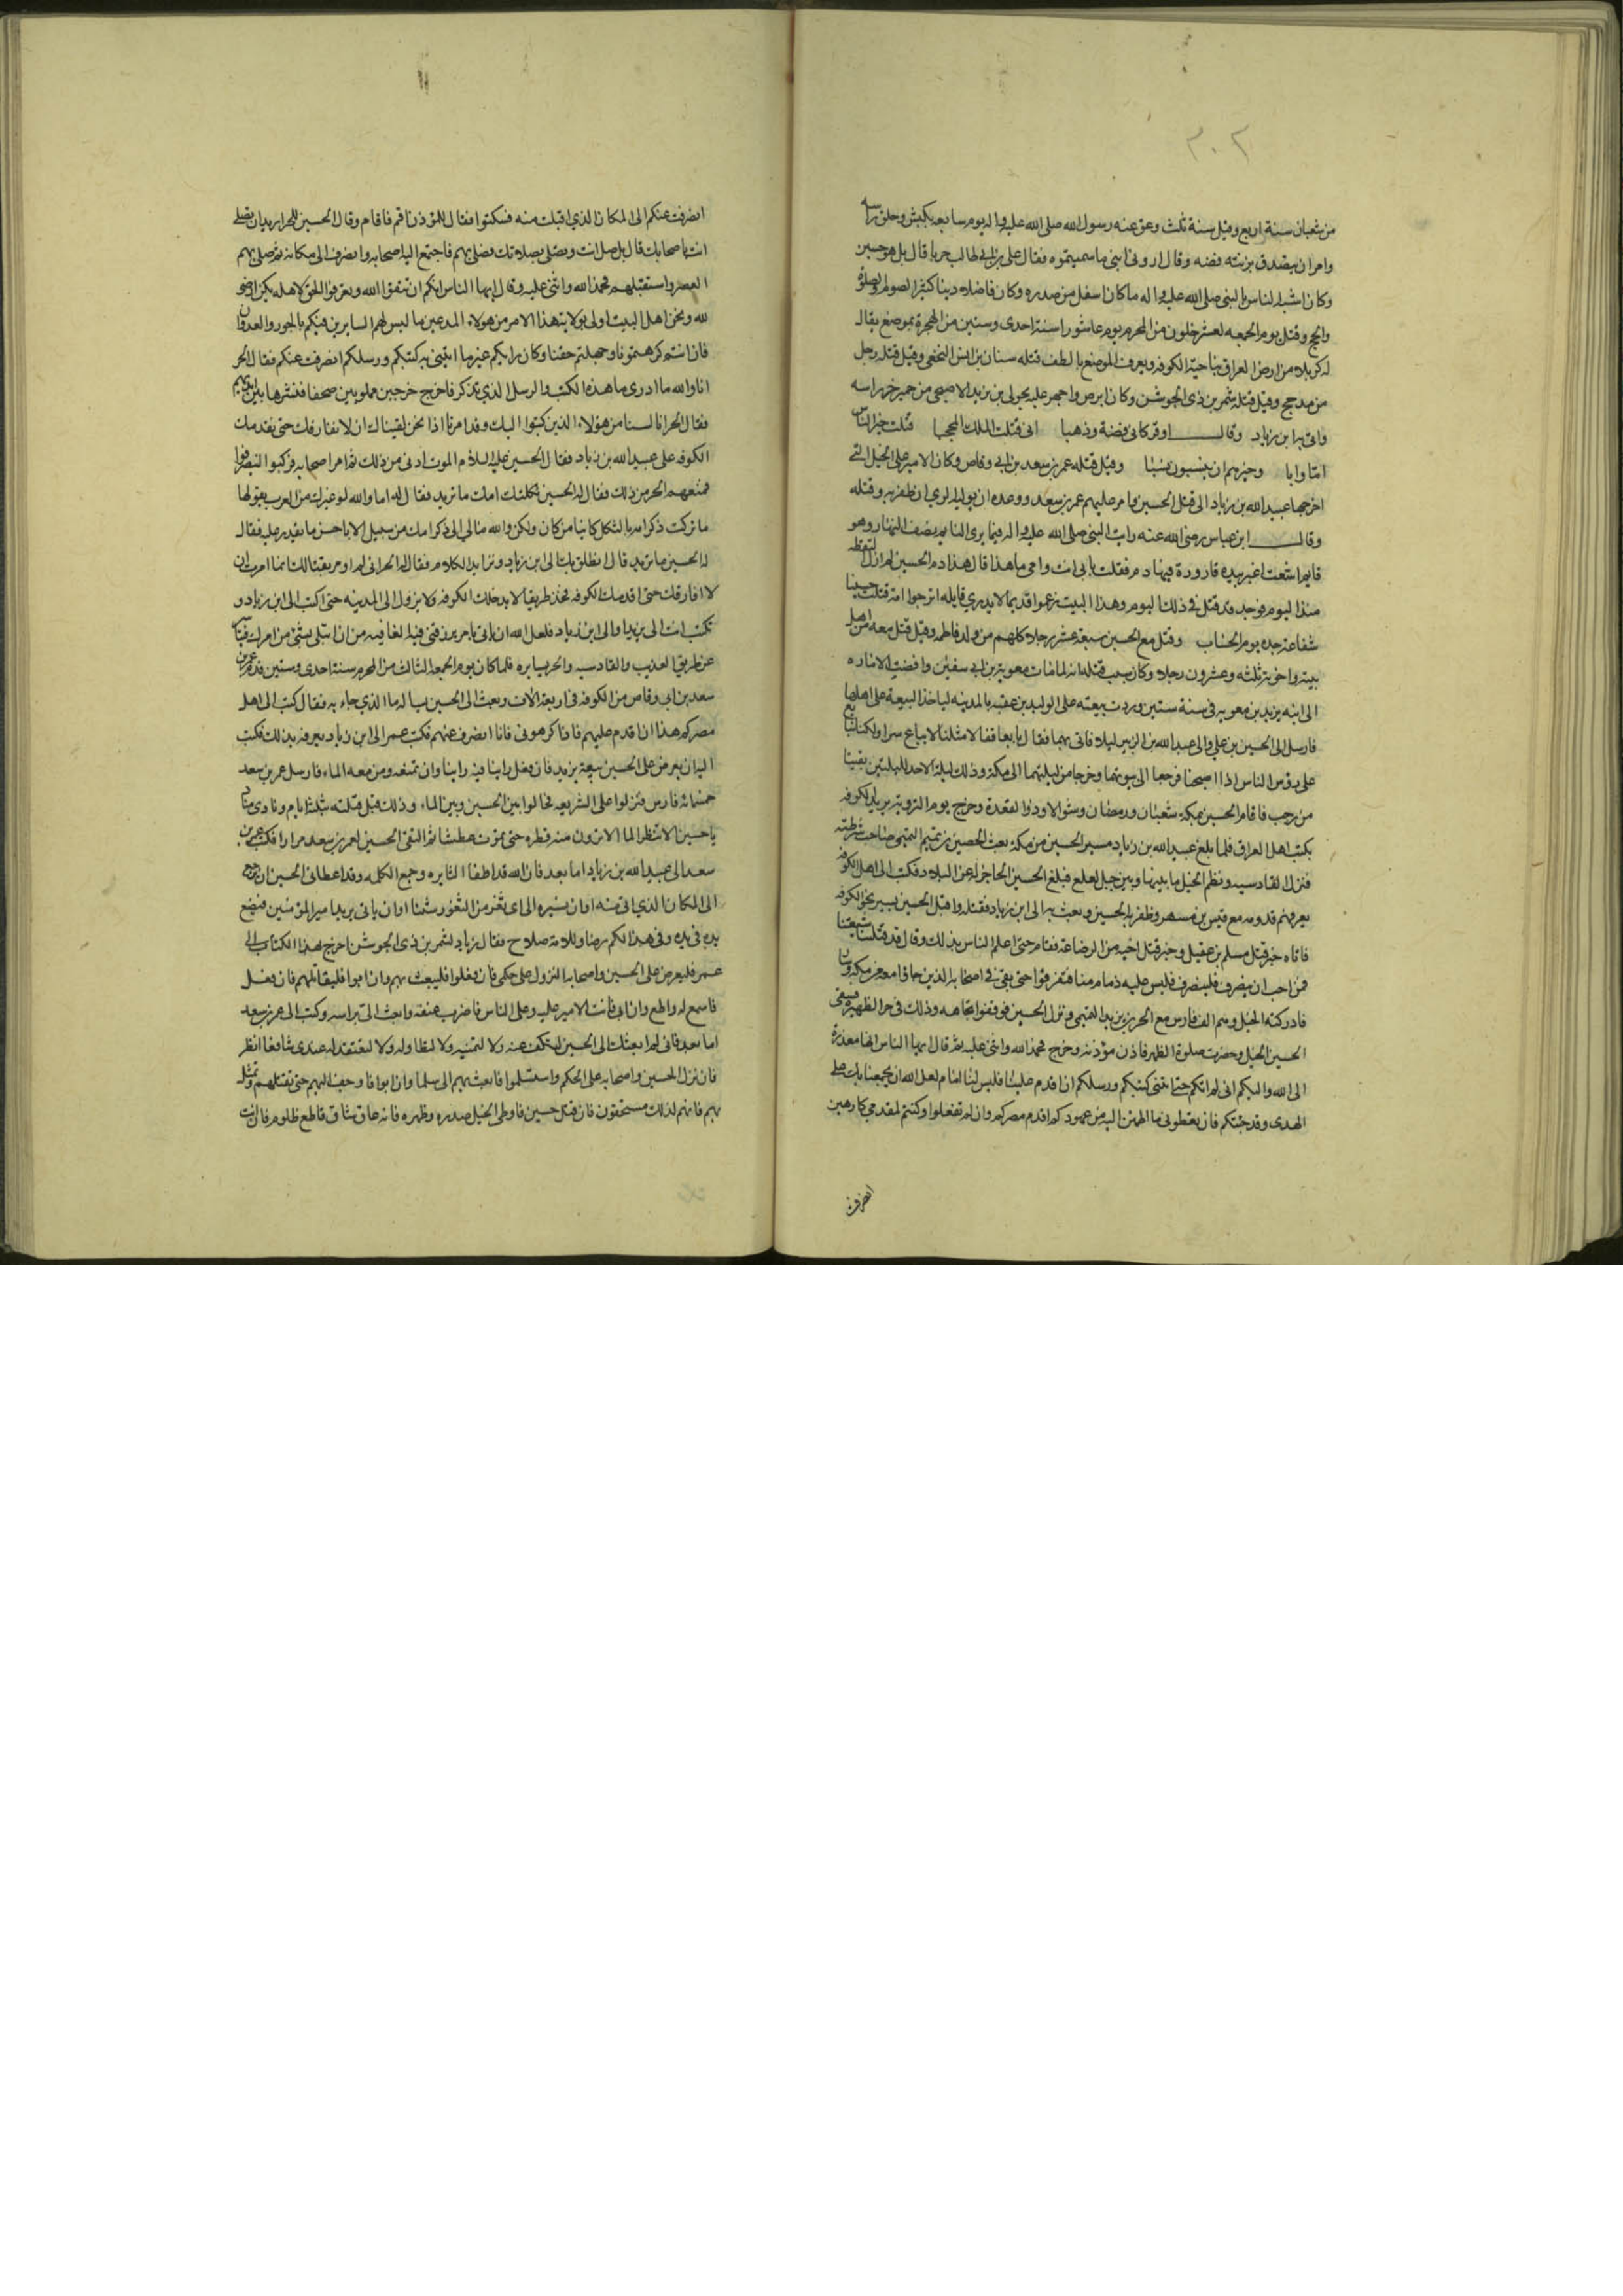 ٣٠٢
من شعبان سنة اربع وقيل سنة ثلث وعق عنه رسول الله صلى الله عليه واله يوم سابعه بكبش وحلق راسه
وامر ان يتصدق بزنته فضه وقال ارونى ابنى ما سميتموه فقال على بن ابى طالب حربا قال بل هو حسين
وكان اشبه الناس بالنبى صلى الله عليه واله ما كان اسفل من صدره وكان فاضلا دينا كثير الصوم والصلوة
والحج وقتل يوم الجمعه لعشر خلون من المحرم يوم عاشورا سنة احدى وستين من الهجرة بموضع يقال
له كربلا من ارض العراق بناحية الكوفه ويعرف الموضع بالطف قتله سنان بن انس النخعى وقيل قتله رجل
من مدحج وقيل قتله شمر بن ذى الجوشن وكان ابرص واجهز عليه خولى بن يزيد الاصبحى من حمير حز راسه
واتى به ابن زياد وقال اوقر كابى فضة وذهبا انى قتلت الملك المحجبا قتلت خير الناس
اما وابا وخيرهم ان ينسبون نسبا وقيل قتله عمر بن سعد بن ابى وقاص وكان الامير على الخيل التى
اخرجها عبيد الله بن زياد الى قتل الحسين وامر عليهم عمر بن سعد ووعده ان يوليه الرى ان ظفر به وقتله
وقال ابن عباس رضى الله عنه رايت النبى صلى الله عليه واله فيما يرى النايم نصف النهار وهو
قايم اشعث اغبر بيده قارورة فيها دم فقلت بابى انت وامى ما هذا قال هذا دم الحسين لم ازل التقطه
منذ اليوم فوجد قد قتل فى ذلك اليوم وهذا البيت زعموا قديما لا يدرى قايله اترجوا امة قتلت حسينا
شفاعة جده يوم الحساب وقتل مع الحسين سبعة عشر رجلا كلهم من ولد فاطمه وقيل قتل معه من اهل
بيته واخوته ثلثه وعشرون رجلا وكان سبب قتله انه لما مات معوية بن ابى سفين وافضت الاماره
الى ابنه يزيد بن معويه فى سنة ستين وردت بيعته على الوليد بن عقبه بالمدينه لياخذ البيعة على اهلها
فارسل الى الحسين بن على والى عبد الله بن الزبير ليلا فاتى بهما فقال بايعا فقالا مثلنا لا يبايع سرا ولكننا نبايع
على رؤس الناس اذا اصبحنا فرجعا الى بيوتهما وخرجا من ليلتهما الى مكة وذلك ليلة الاحد لليلتين بقيتا
من رجب فاقام الحسين بمكة شعبان ورمضان وشوالا وذو القعدة وخرج يوم التروية يريد الكوفه
بكتب اهل العراق فلما بلغ عبيد الله بن زياد مسير الحسين من مكة بعث الحصين بن تميم التميمى صاحب شرطته
فنزل القادسيه ونظم الخيل ما بينها وبين جبل لعلع فبلغ الحسين الحاجز له عن البلاد فكتب الى اهل الكوفه
يعرفهم قدومه مع قيس بن مسهر وظفر به الحصين وبعث به الى ابن زياد فقتله واقبل الحسين يسير نحو الكوفه
فاتاه خبر قتل مسلم بن عقيل وخبر قتل اخيه من الرضاعه فقام حتى اعلم الناس بذلك وقال قد قتلت شيعتنا
فمن احب ان ينصرف فلينصرف فليس عليه ذمام منا فتفرقوا حتى بقى فى اصحابه الذين جاؤا معه من مكه وسار
فادركته الخيل وهم الف فارس مع الحر بن يزيد التميمى ونزل الحسين فوقفوا تجاهه وذلك فى حر الظهيرة فسقى
الحسين الخيل وحضرت صلوة الظهر فاذن مؤذنه وخرج فحمد الله واثنى عليه ثم قال ايها الناس انها معذرة
الى الله واليكم انى لم اتكم حتى اتتنى كتبكم ورسلكم ان اقدم علينا فليس لنا امام لعل الله ان يجمعنا بك على
الهدى وقد جئتكم فان تعطونى ما اطمئن اليه من عهودكم اقدم مصركم وان لم تفعلوا وكنتم لمقدمى كارهين
انصرفت
انصرفت عنكم الى المكان الذى اقبلت منه فسكتوا فقال للمؤذن اقم فاقام وقال الحسين للحر اتريد ان تصلى
انت باصحابك قال بل صل انت ونصلى بصلاتك فصلى بهم فاجتمع اليه اصحابه وانصرف الى مكانه ثم صلى بهم
العصر واستقبلهم فحمد الله واثنى عليه وقال ايها الناس انكم ان تتقوا الله وتعرفوا الحق لاهله يكن ارضى
لله ونحن اهل البيت اولى بولاية هذا الامر من هولاء المدعين ما ليس لهم السايرين فيكم بالجور والعدوان
فان انتم كرهتمونا وجهلتم حقنا وكان رايكم غير ما اتتنى به كتبكم ورسلكم انصرفت عنكم فقال الحر
انا والله ما ادرى ما هذه الكتب والرسل الذى تذكر فاخرج خرجين مملوين صحفا فنثرها بين ايديهم
فقال الحر انا لسنا من هؤلاء الذين كتبوا اليك وقد امرنا اذا نحن لقيناك ان لا نفارقك حتى نقدمك
الكوفه على عبيد الله بن زياد فقال الحسين عليه السلام الموت ادنى من ذلك ثم امر اصحابه فركبوا لينصرفوا
فمنعهم الحر من ذلك فقال له الحسين ثكلتك امك ما تريد فقال له اما والله لو غيرك من العرب يقولها
ما تركت ذكر امه بالثكل كاينا من كان ولكن والله ما لى الى ذكر امك من سبيل الا باحسن ما نقدر عليه فقال
له الحسين ما تريد قال انطلق بك الى ابن زياد وتزايد الكلام فقال له الحر انى لم اومر بقتالك انما امرت ان
لا افارقك حتى اقدمك الكوفه فخذ طريقا لا يدخلك الكوفه ولا يردك الى المدينه حتى اكتب الى ابن زياد و
تكتب انت الى يزيد او الى ابن زياد فلعل الله ان ياتى بامر يرزقنى فيه العافيه من ان ابتلى بشئ من امرك فتياسر
عن طريق العذيب والقادسيه والحر يسايره فلما كان يوم الجمعه الثالث من المحرم سنة احدى وستين قدم عمر بن
سعد بن ابى وقاص من الكوفه فى اربعة الاف وبعث الى الحسين يساله ما الذى جاء به فقال كتب الى اهل
مصركم هذا ان اقدم عليهم فاذا كرهونى فانا انصرف عنهم فكتب عمر الى ابن زياد يعرفه بذلك فكتب
اليه ان يعرض على الحسين بيعة يزيد فان فعل راينا فيه راينا وان تمنعه ومن معه الماء فارسل عمر بن سعد
خمسمائة فارس فنزلوا على الشريعه فحالوا بين الحسين وبين الماء وذلك قبل قتلته بثلثة ايام ونادى مناد
يا حسين الا تنظر الما الا ترون منه قطره حتى تموت عطشا ثم التقى الحسين لعمر بن سعد مرارا فكتب عمر بن
سعد الى عبيد الله بن زياد اما بعد فان الله قد اطفا النايره وجمع الكلمه وقد اعطانى الحسين ان يرجع
الى المكان الذى اتى منه او ان نسيره الى اى ثغر من الثغور شئنا او ان ياتى يزيد امير المؤمنين فيضع
يده فى يده وفى هذا لكم رضا وللامة صلاح فقال زياد لشمر بن ذى الجوشن اخرج بهذا الكتاب الى
عمر فليعرض على الحسين واصحابه النزول على حكمى فان فعلوا فليبعث بهم وان ابوا فليقاتلهم فان فعل
فاسمع له واطع وان ابى فانت الامير عليه وعلى الناس فاضرب عنقه وابعث الى براسه وكتب الى عمر بن سعد
اما بعد فانى لم ابعثك الى الحسين لتكف عنه ولا لتمنيه ولا لتطاوله ولا لتعتقد له عندى شافعا انظر
فان نزل الحسين واصحابه على الحكم واستسلموا فابعث بهم الى سلما وان ابوا فازحف اليهم حتى تقتلهم وتمثل
بهم فانهم لذلك مستحقون فان قتل حسين فاوطى الخيل صدره وظهره فانه عاق شاق قاطع ظلوم فان انت